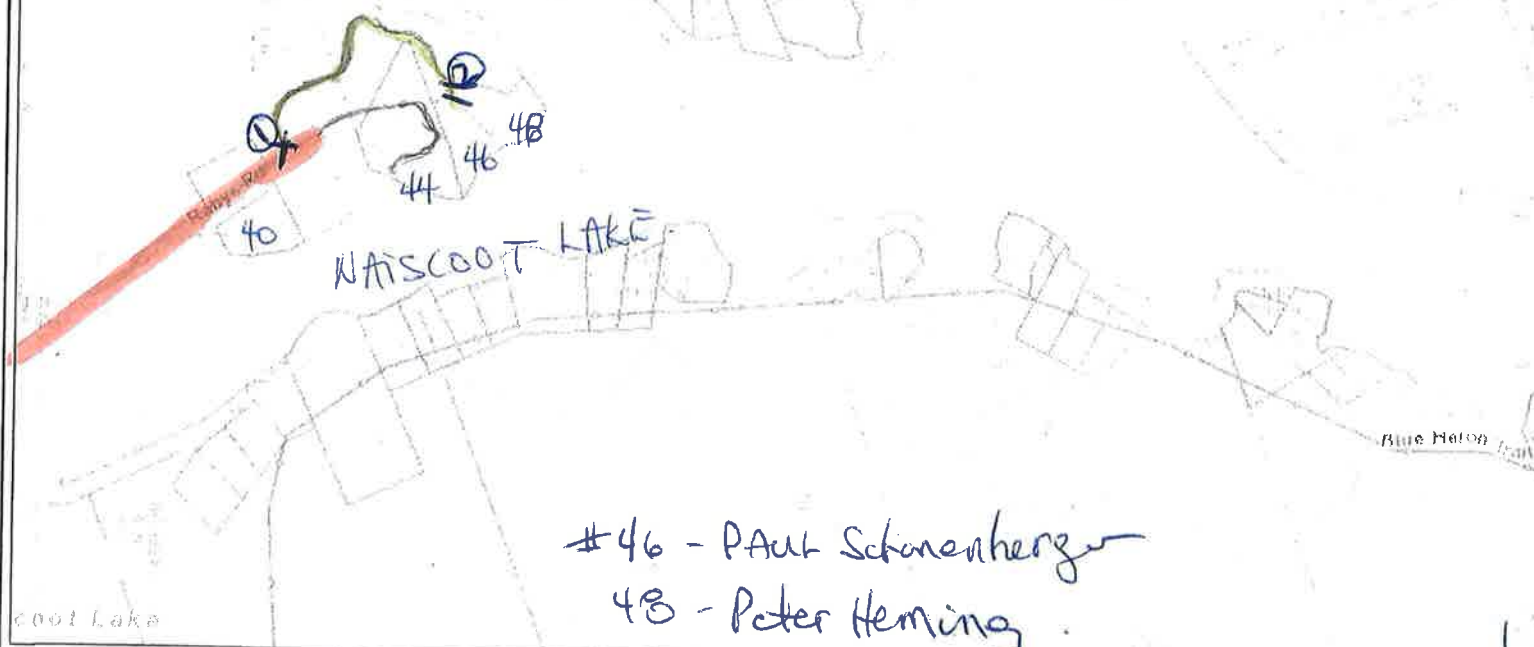 ①
②
48
46
44
40
NAISCOOT LAKE
Blue Heron Trail
#46 - PAUL Schonenberger
48 - Peter Heming
coot Lake